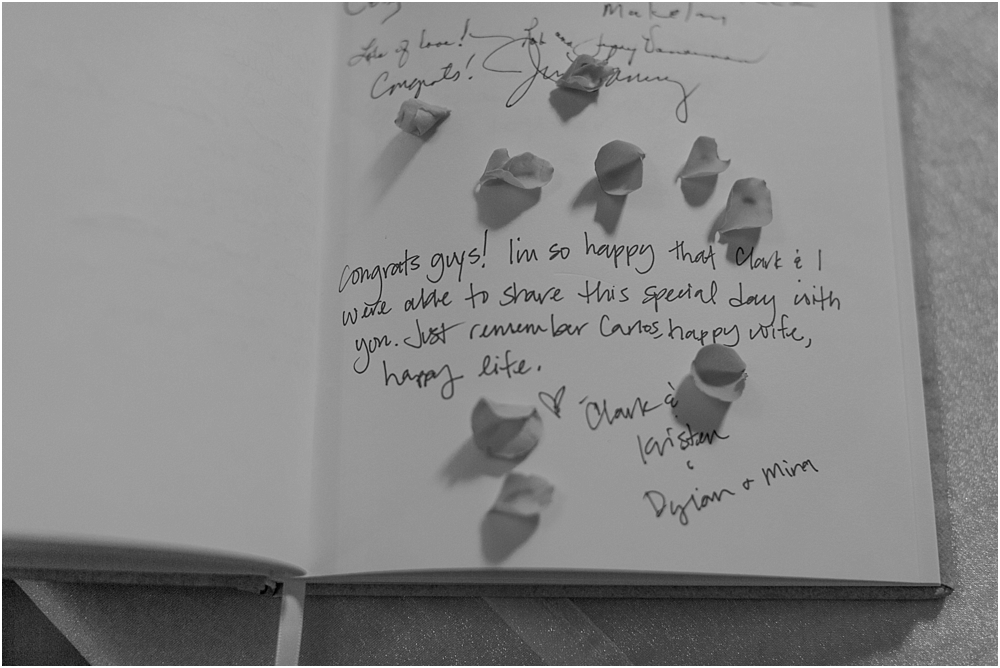 Lots of love!
Congrats!
Congrats guys! I'm so happy that Clark & I
were able to share this special day with
you. Just remember Carlos, happy wife,
happy life.
♡ Clark &
Kristen
&
Dylan + Mina